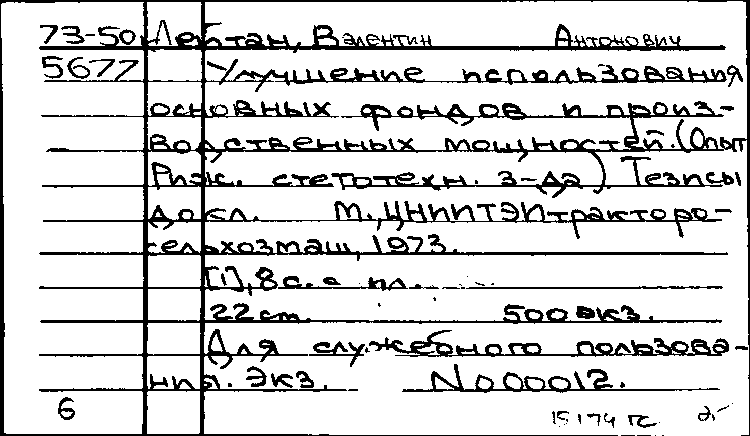 73-50 Лейтан, Валентин Антонович
5677 Улучшение использования
основных фондов и произ-
водственных мощностей. (Опыт
Риж. светотехн. з-да). Тезисы
докл. М., ЦНИИТЭИтракторо-
сельхозмаш, 1973.
[1], 8 с. с ил.
22 см. 500 экз.
Для служебного пользова-
ния. Экз. N000012.
6 15 174 ТС